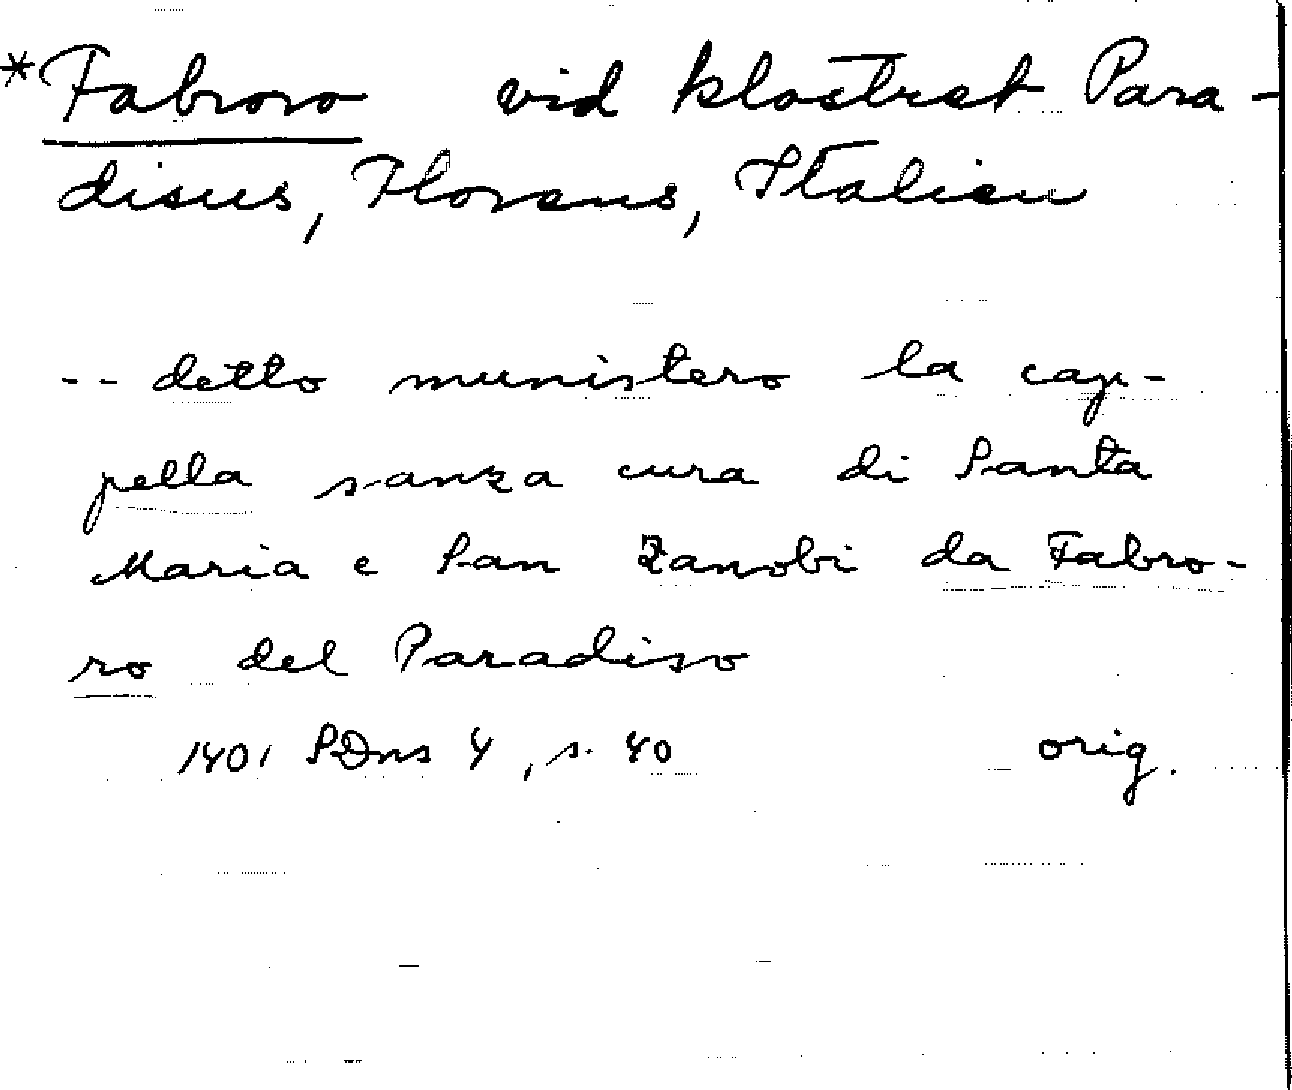 *Fabroro vid klostret Para-
disus, Florens, Italien
-- detto munistero la cap-
pella sanza cura di Santa
Maria e San Zanobi da Fabro-
ro del Paradiso
1401 SDns 4, s. 40 orig.